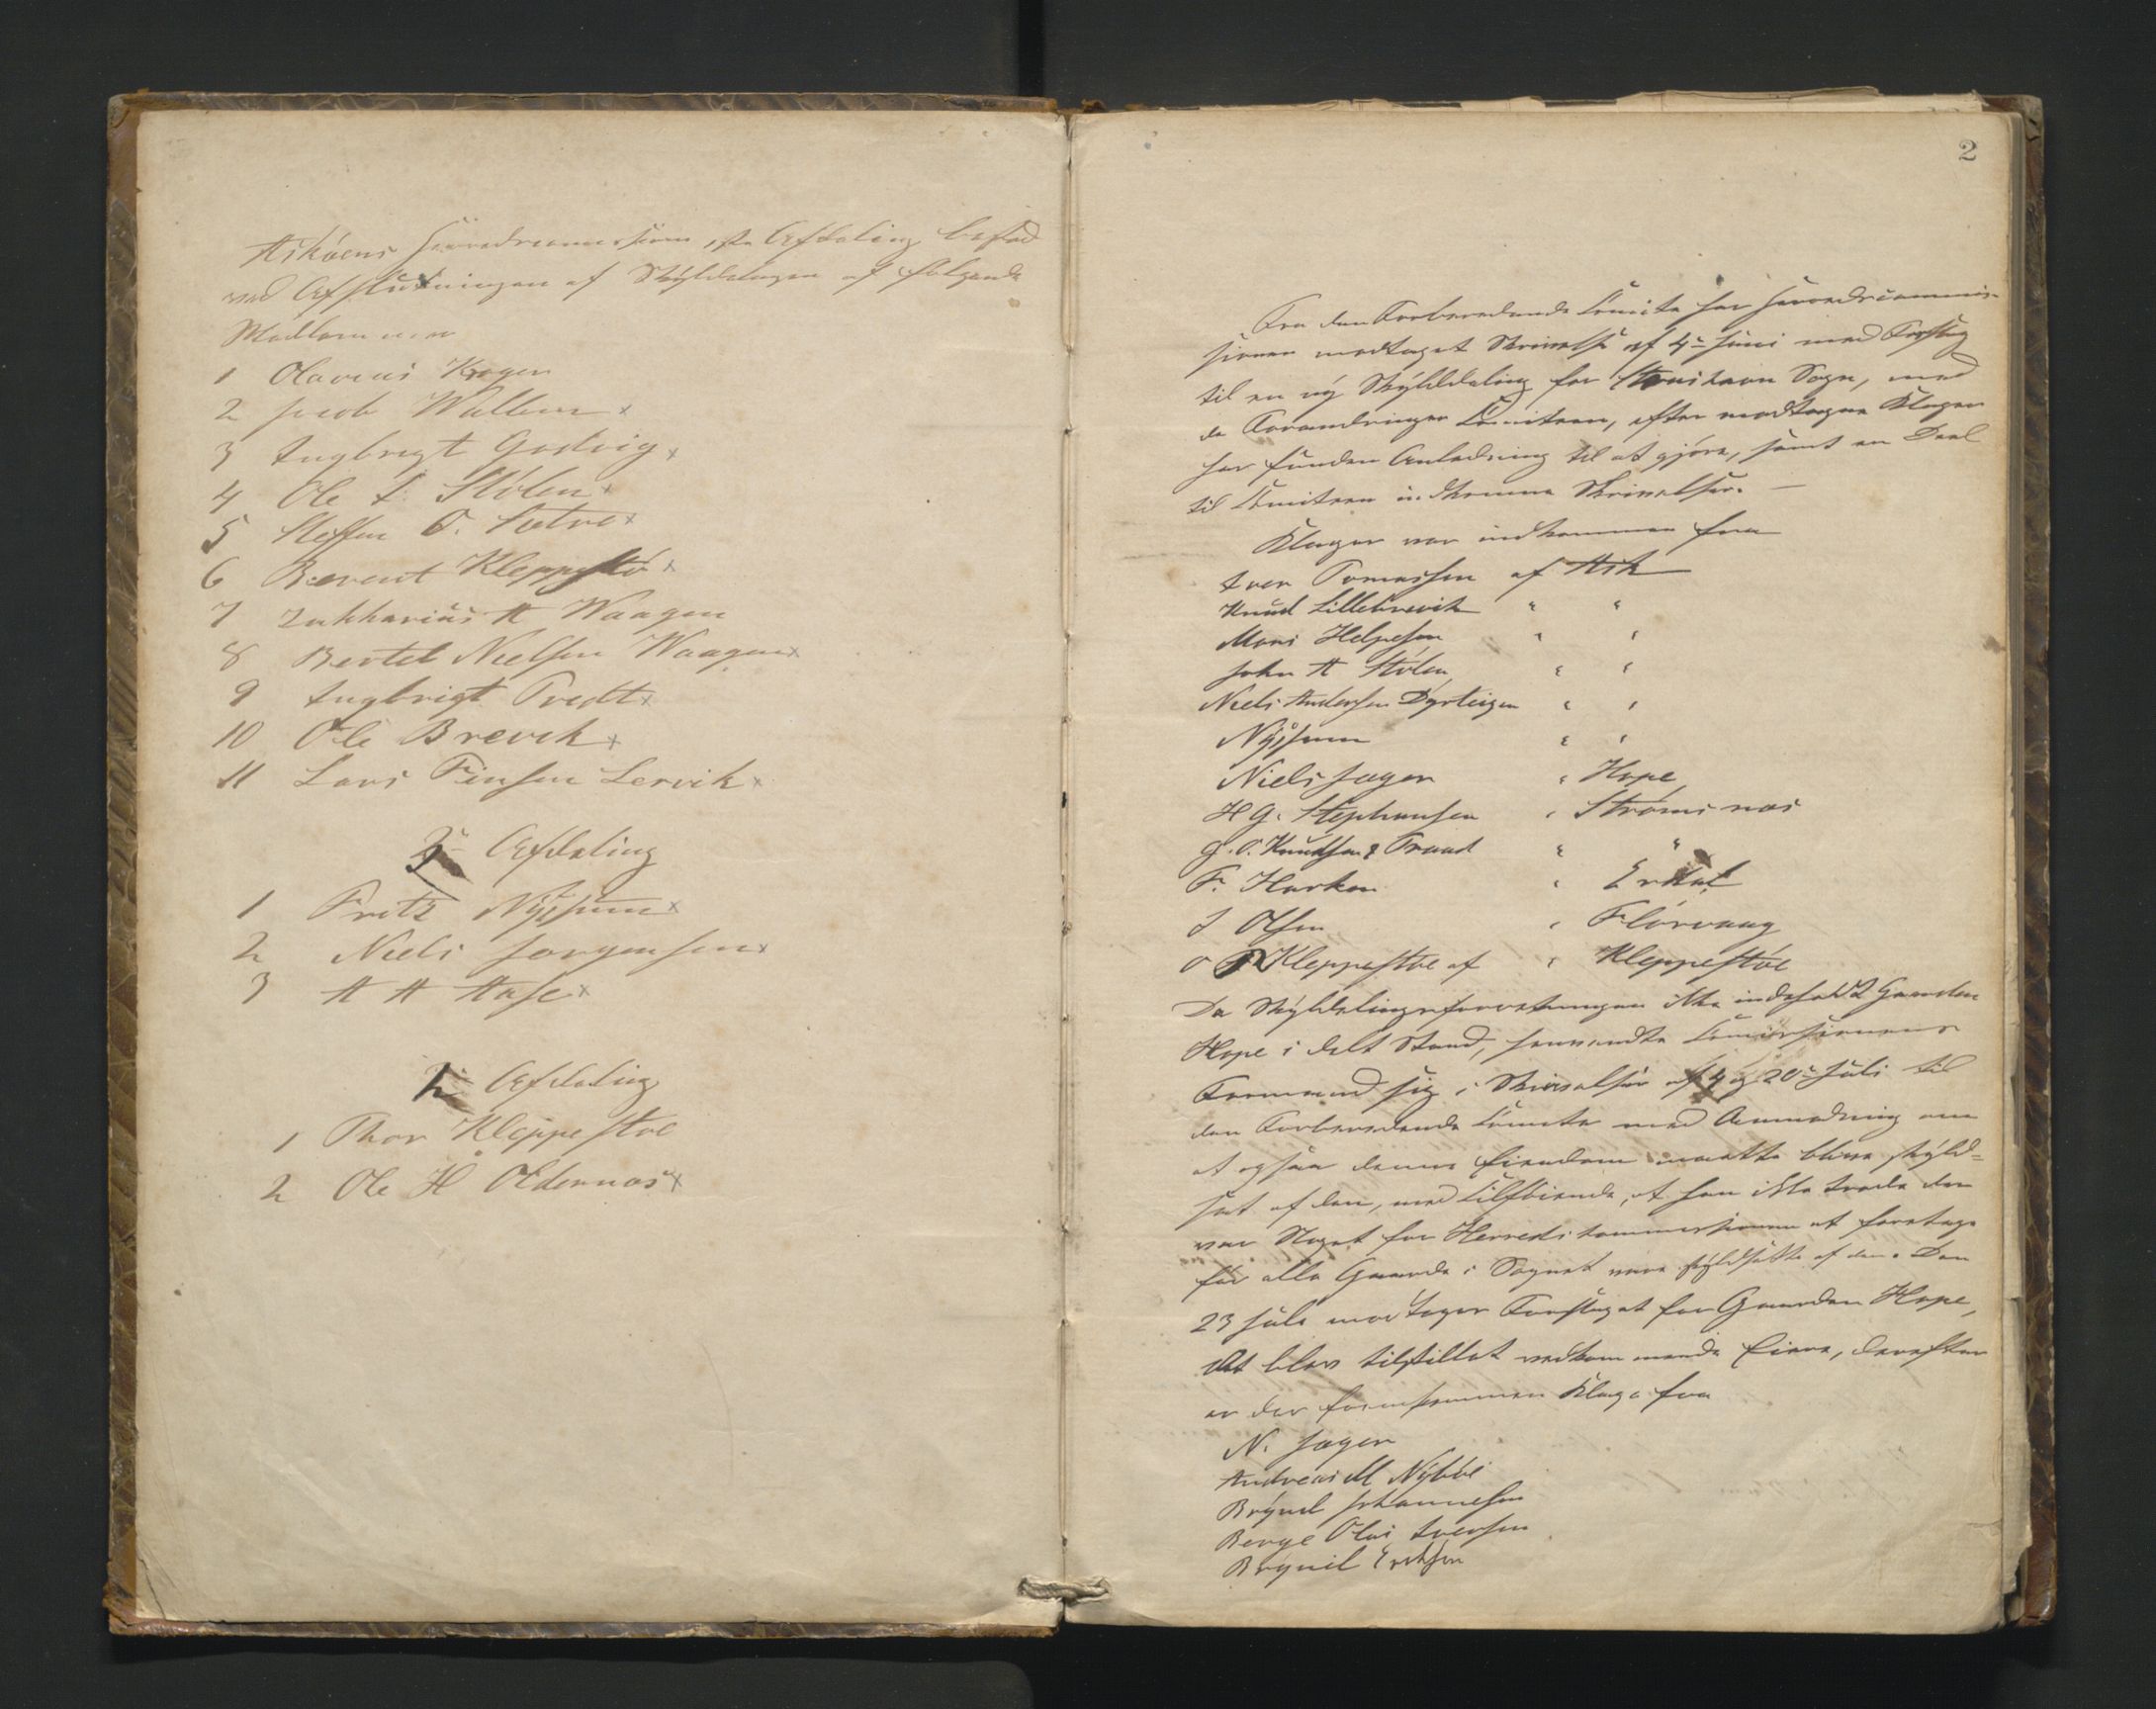 Askøens Herredscommission 1ste Afdeling bestod
ved Afslutningen af Skyldelingen af følgende
Medlemmer
1 Olavius Krogen
2 Jacob Wallem x
3 Ingbrigt Godvig x
4 Ole I. Stölen x
5 Steffen O. Sætre x
6 Berent Kleppestö x
7 Zakkarias A Waagen
8 Bertel Nielsen Waagen x
9 Ingbrigt Tvedt x
10 Ole Brevik x
11 Lars Finsen Lervik x
3 Afdeling
1 Fritz x
2 Niels Jørgensen x
3 A A Aase x
2 Afdeling
1 Thor Kleppestöe
2 Ole H Oldernæs x
2
Fra den Forberedende Comite har Herredscommis-
sionen modtaget Skrivelse af 4de Juni med Forslag
til en ny Skylddeling for Sogn, med
de Forandringer Comiteen, efter modtagne Klager
har funden Anledning til at gjøre, samt en Deel
til Comiteen indkomne Skrivelser. —
Klager var indkommen fra
Iver Tomassen af Ask
Knud Lillebrevik " "
Mons Helgesen " "
John A Stölen " "
Niels Andersen Dyrteigen " "
" "
Niels Jæger " Hope
H G. Stephansen " Strømsnæs
G. C. Knudsen & Traad " "
F. Harken " Erdal
I Olsen " Flórvaag
O Kleppestöe af " Kleppestöe
Da Skyldelingsforretningen ikke indeholdt Gaarden
Hope i delt Stand, henvendte Commissionens
Formand sig i Skrivelser af 4 og 20de Juli til
den Forberedende Comite med Anmodning om
at ogsaa denne Eiendom maatte blive skyld-
sat af den, med Tilføiende, at han ikke troede der
var Noget for Herredskommissionen at foretage
før alle Gaarde i Sognet vare skyldsatte af den. Den
23 Juli modtoges Forslaget for Gaarden Hope,
det blev tilstillet vedkommende Eiere, derefter
er der fremkommen Klage fra
N. Jæger
Andreas M Nybbö
Brynil Johannesen
Berge Olai Iversen
Brynil Eriksen